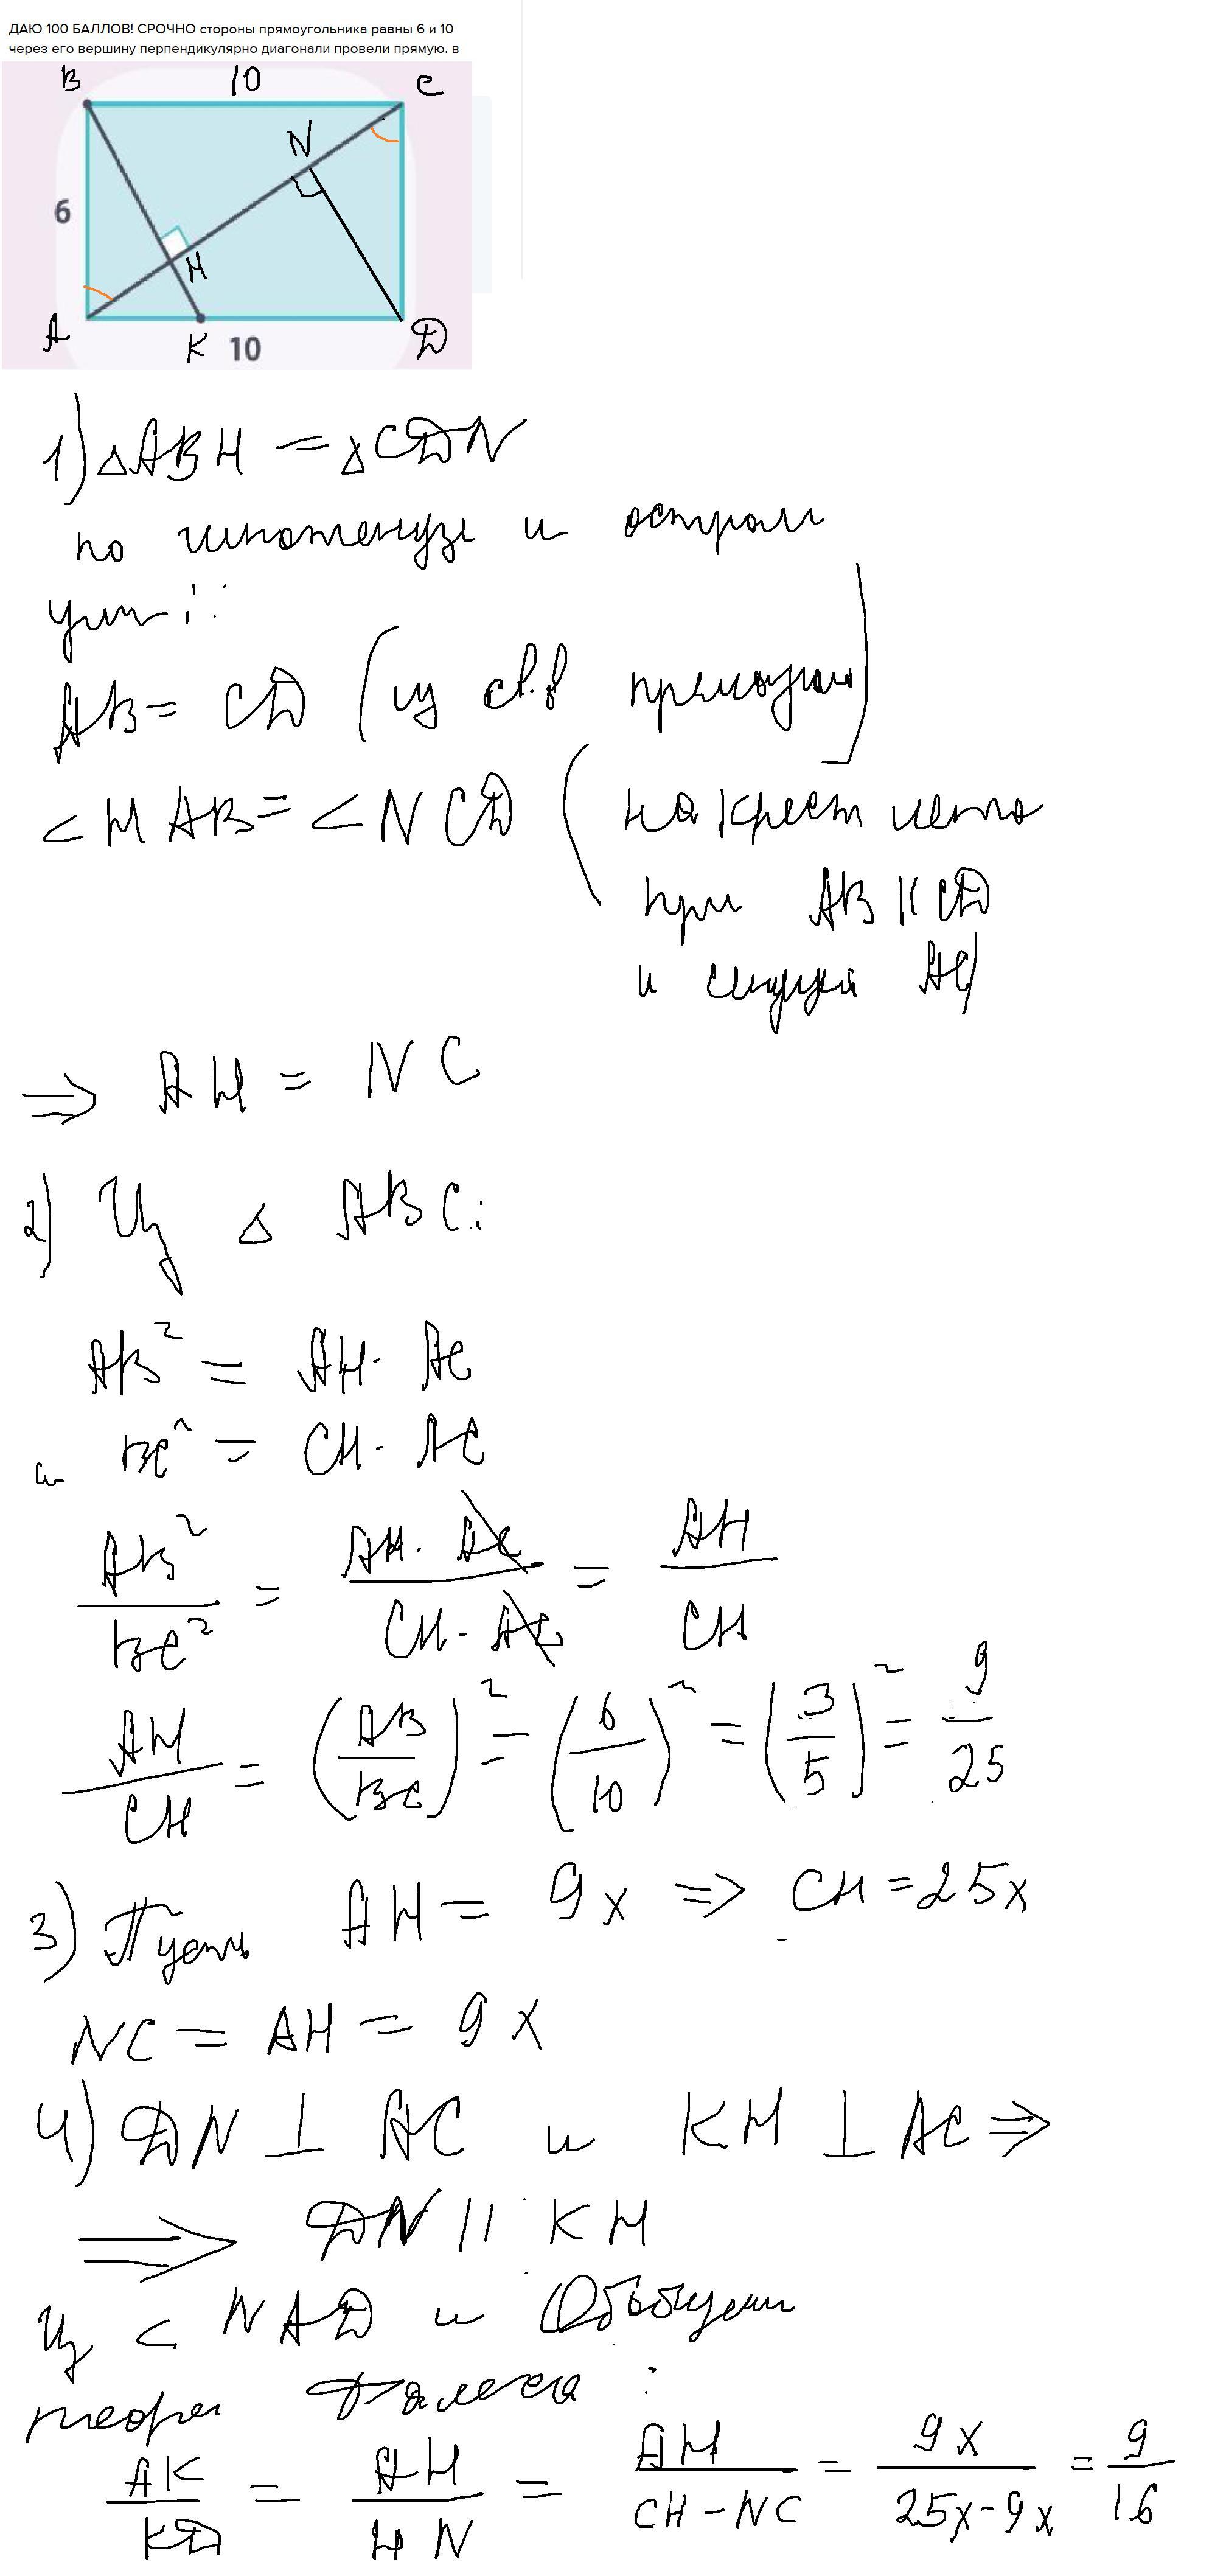 ДАЮ 100 БАЛЛОВ! СРОЧНО стороны прямоугольника равны 6 и 10
через его вершину перпендикулярно диагонали провели прямую. в
B 10 C
N
6
H
A K 10 D
1) △ABH = △CDN
по гипотенузе и острому
углу:
AB = CD (из св.в прямоугол)
<HAB = <NCD (накрест лежа
при AB || CD
и секущей AC)
⇒ AH = NC
2) Из △ ABC:
AB² = AH · AC
и BC² = CH · AC
AB²/BC² = AH · AC/CH · AC = AH/CH
AH/CH = (AB/BC)² = (6/10)² = (3/5)² = 9/25
3) Пусть AH = 9x ⇒ CH = 25x
NC = AH = 9x
4) DN ⊥ AC и KH ⊥ AC ⇒
⇒ DN || KH
Из < NAD и Обобщен
теоре Фалеса:
AK/KD = AH/HN = AH/CH - NC = 9x/25x - 9x = 9/16